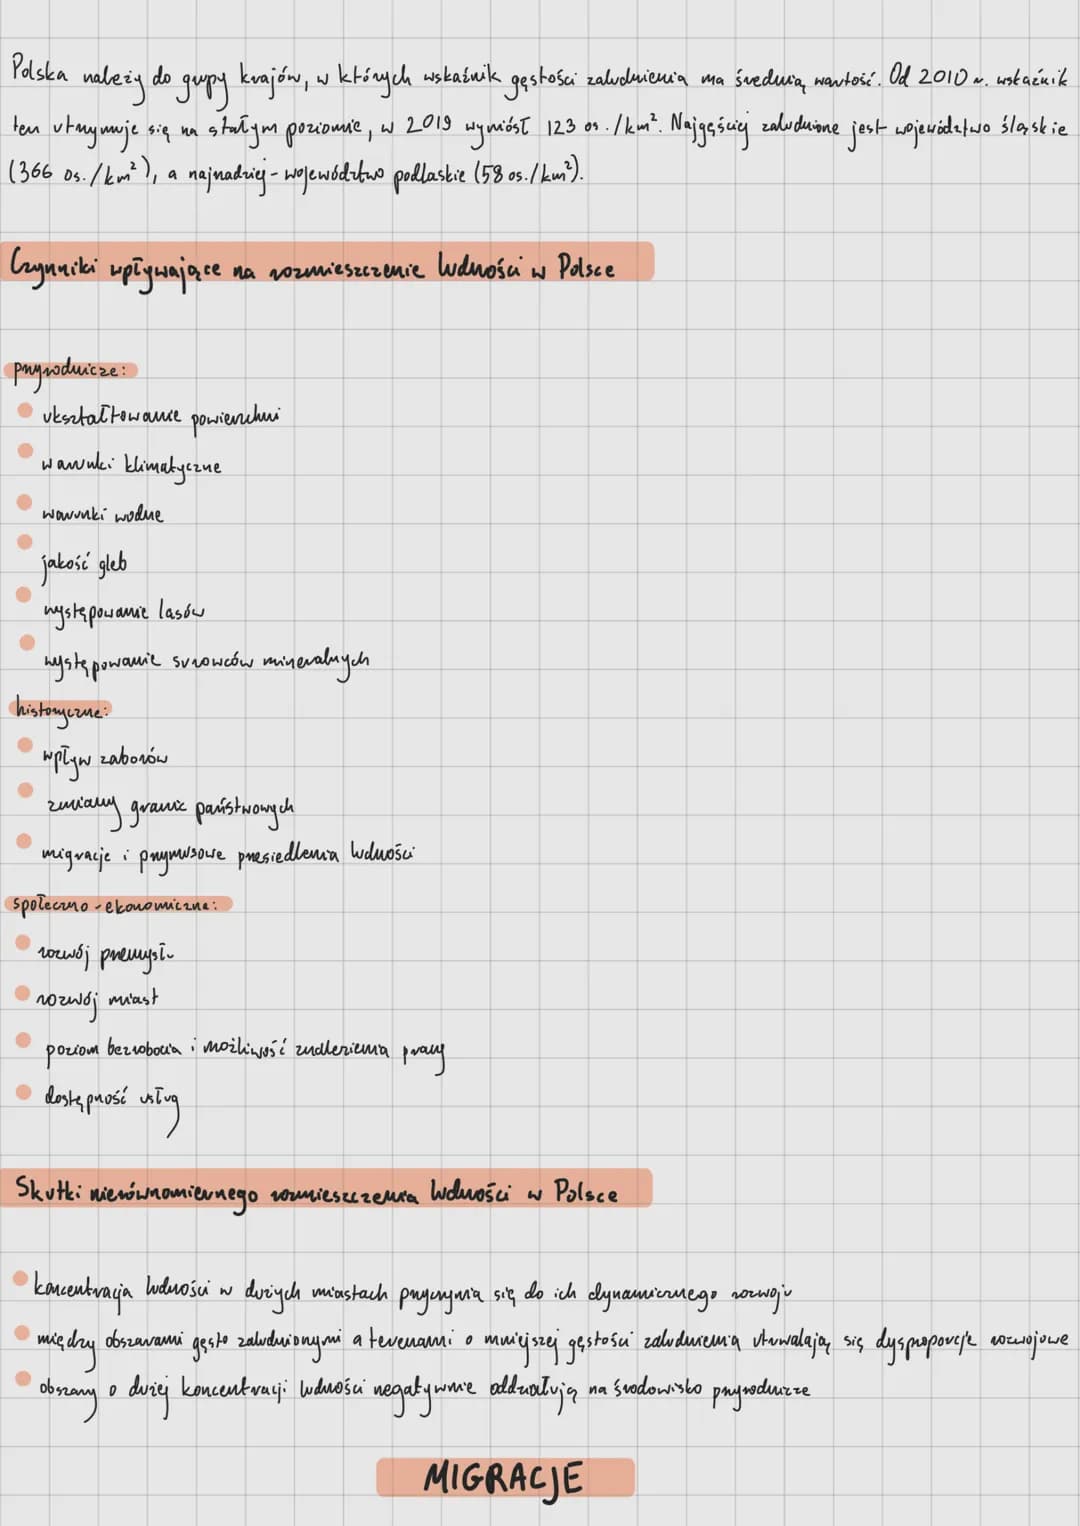 Polska należy do grupy krajów, w których wskaźnik gęstości zaludnienia ma średnią wartość. Od 2010 r. wskaźnik
ten utrzymuje się na stałym poziomie, w 2019 wyniósł 123 os./km². Najgęściej zaludnione jest województwo śląskie
(366 os./km²), a najrzadziej - województwo podlaskie (58 os./km²).
Czynniki wpływające na rozmieszczenie ludności w Polsce
przyrodnicze:
ukształtowanie powierzchni
warunki klimatyczne
warunki wodne
jakość gleb
występowanie lasów
występowanie surowców mineralnych
historyczne:
wpływ zaborów
zmiany granic państwowych
migracje i przymusowe przesiedlenia ludności
społeczno-ekonomiczne:
rozwój przemysłu
rozwój miast
poziom bezrobocia i możliwość znalezienia pracy
dostępność usług
Skutki nierównomiernego rozmieszczenia ludności w Polsce
koncentracja ludności w dużych miastach przyczynia się do ich dynamicznego rozwoju
między obszarami gęsto zaludnionymi a terenami o mniejszej gęstości zaludnienia utrwalają się dysproporcje rozwojowe
obszary o dużej koncentracji ludności negatywnie oddziałują na środowisko przyrodnicze
MIGRACJE